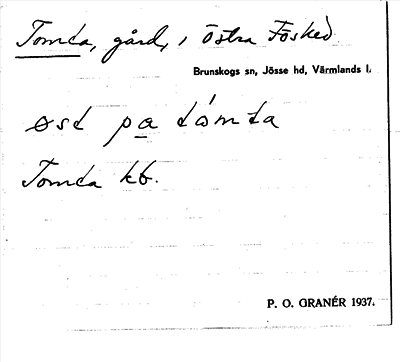 Tomta, gård, i Östra Fösked
Brunskogs sn, Jösse hd, Värmlands l.
øst pa tòmta
Tomta kb.
P. O. GRANÉR 1937.